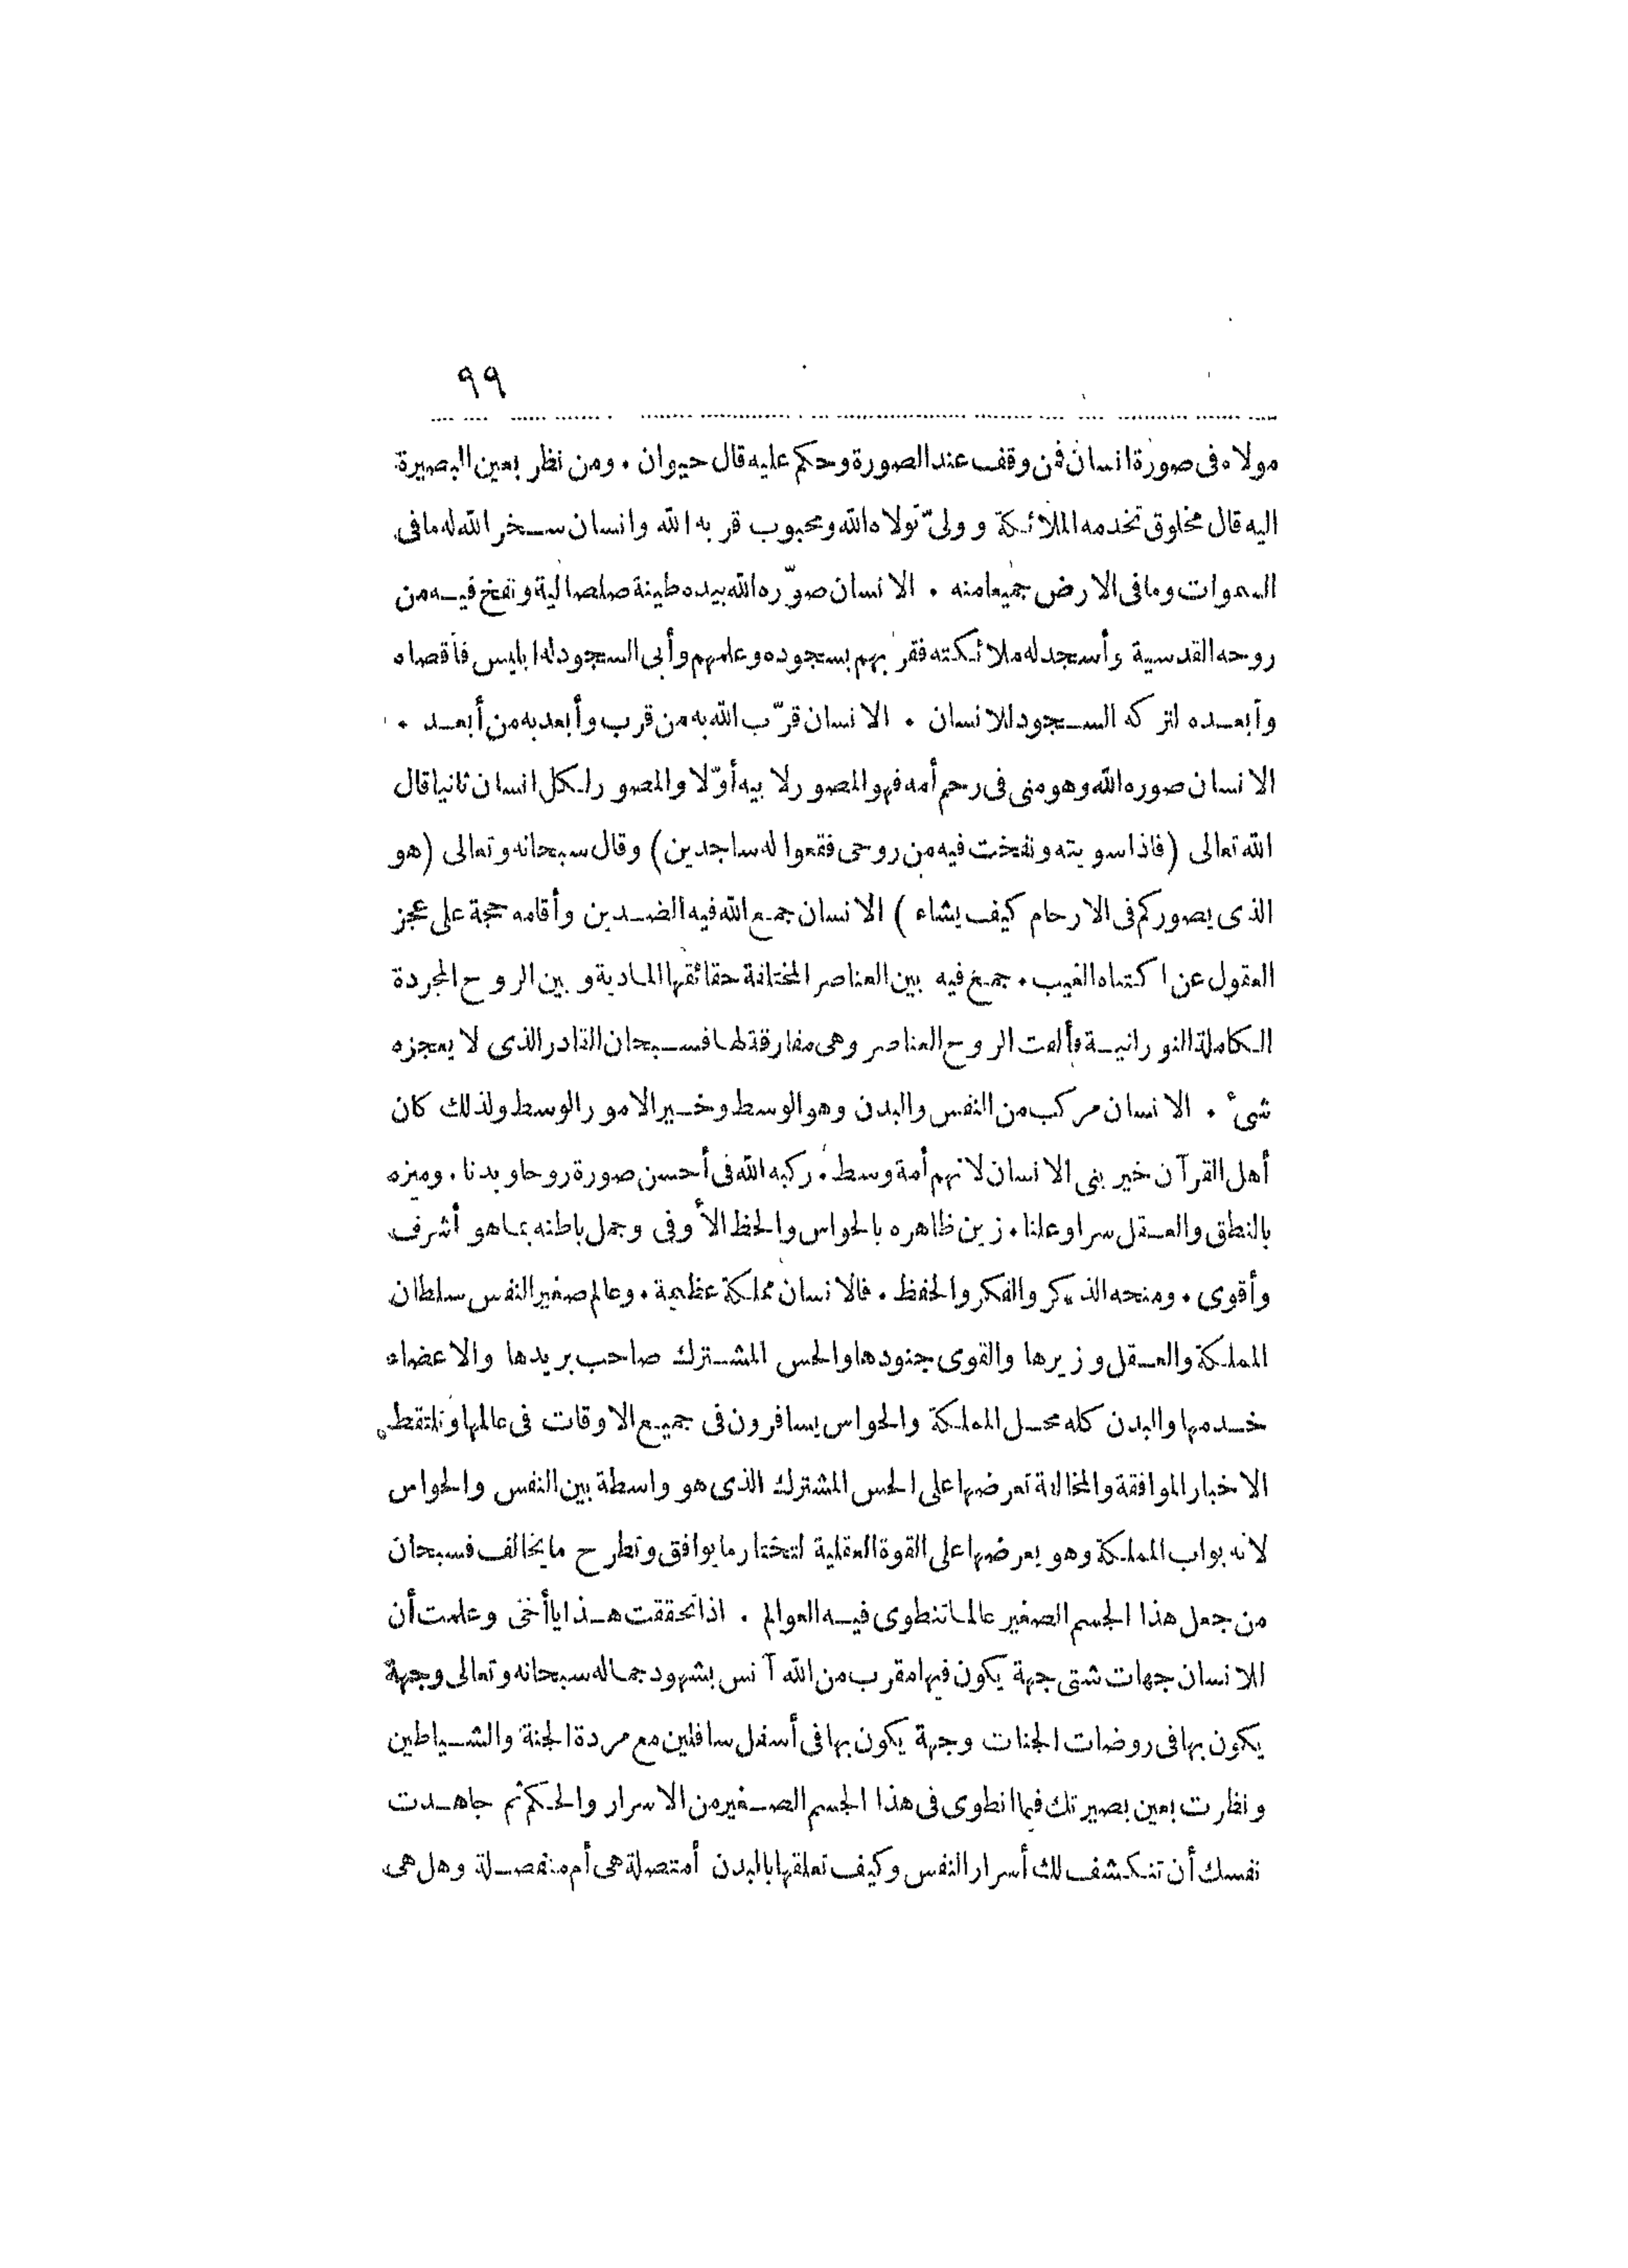 ٩٩
مولاه فى صورة انسان فمن وقف عند الصورة وحكم عليه قال حيوان . ومن نظر بعين البصيرة
اليه قال مخلوق تخدمه الملائكة و ولىّ تولاه الله ومحبوب قر به الله وانسان سخر الله له ما فى
السموات وما فى الارض جميعا منه . الانسان صوّره الله بيده طينة صلصالية ونفخ فيه من
روحه القدسية وأسجد له ملائكته فقر بهم بسجوده وعلمهم وأبى السجود له ابليس فأقصاه
وأبعده لتركه السجود للانسان . الانسان قرّب الله به من قرب وأبعد به من أبعد .
الانسان صوره الله وهو منى فى رحم أمه فهو المصور لابيه أوّلا والمصور لكل انسان ثانيا قال
الله تعالى (فاذا سويته ونفخت فيه من روحى فقعوا له ساجدين) وقال سبحانه وتعالى (هو
الذى يصوركم فى الارحام كيف يشاء ) الانسان جمع الله فيه الضدين وأقامه حجة على عجز
العقول عن اكتناه الغيب . جمع فيه بين العناصر المختلفة حقائقها المادية و بين الروح المجردة
الكاملة النورانية فألفت الروح العناصر وهى مفارقة لها فسبحان القادر الذى لا يعجزه
شىء . الانسان مركب من النفس والبدن وهو الوسط وخير الامور الوسط ولذلك كان
أهل القرآن خير بنى الانسان لانهم أمة وسط . ركبه الله فى أحسن صورة روحا و بدنا . وميزه
بالنطق والعقل سرا وعلنا . زين ظاهره بالحواس والحظ الأوفى وجمل باطنه بما هو أشرف
وأقوى . ومنحه الذكر والفكر والحفظ . فالانسان مملكة عظيمة . وعالم صغير النفس سلطان
المملكة والعقل وزيرها والقوى جنودها والحس المشترك صاحب بريدها والاعضاء
خدمها والبدن كله محل المملكة والحواس يسافرون فى جميع الاوقات فى عالمها وتلتقط
الاخبار الموافقة والمخالفة تعرضها على الحس المشترك الذى هو واسطة بين النفس والحواس
لانه بواب المملكة وهو يعرضها على القوة العقلية لتختار ما يوافق وتطرح ما يخالف فسبحان
من جعل هذا الجسم الصغير عالما تنطوى فيه العوالم . اذا تحققت هذا يا أخى وعلمت أن
للانسان جهات شتى جهة يكون فيها مقرب من الله آنس بشهود جماله سبحانه وتعالى وجهة
يكون بها فى روضات الجنات وجهة يكون بها فى أسفل سافلين مع مردة الجنة والشياطين
ونظرت بعين بصيرتك فيما انطوى فى هذا الجسم الصغير من الاسرار والحكم ثم جاهدت
نفسك أن تنكشف لك أسرار النفس وكيف تعلقها بالبدن أمتصلة هى أم منفصلة وهل هى